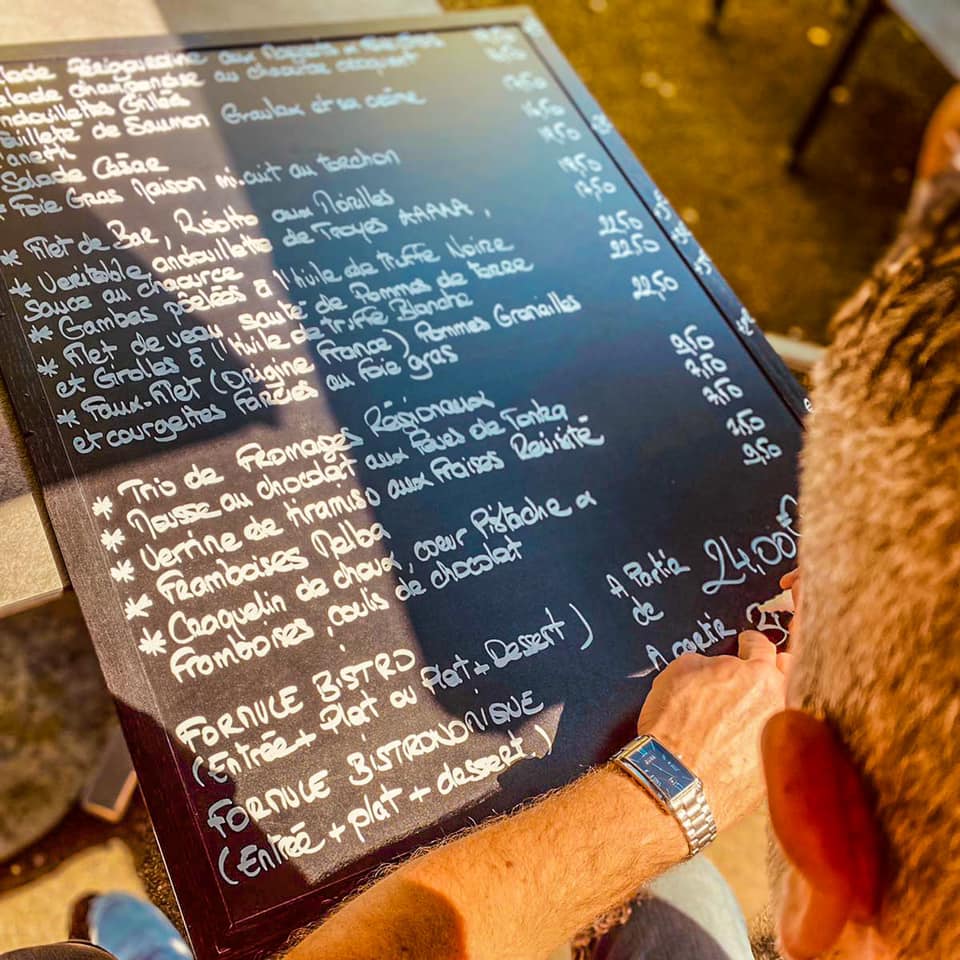 Salade Périgourdine aux
Salade champenoise au chaource croquant
Andouillettes Grillés
Feuilleté de Saumon Gravlax et sa crème
d'aneth
Salade César
* Foie Gras Maison mi.cuit au torchon
17,50
* Filet de Bar, Risotto aux Morilles
* Veritable andouillette de Troyes AAAAA,
Sauce au chaource
22,50
* Gambas poêlées à l'Huile de Truffe Noire
22,50
* Filet de veau, sauté de Pommes de terre
et Girolles à l'Huile de Truffe Blanche
22,50
* Faux-Filet (Origine France) Pommes Grenailles
et courgettes Farcies au foie gras
* Trio de Fromages Régionaux
* Mousse au chocolat aux Fèves de Tonka
* Verrine de tiramisu aux Fraises Revisité
* Framboises Melba
* Craquelin de choux, coeur Pistache et
Framboises, coulis de chocolat
FORMULE BISTRO A Partir de 24,00
(Entrée + Plat ou Plat + Dessert)
FORMULE BISTRONOMIQUE A partir
(Entrée + plat + dessert.)